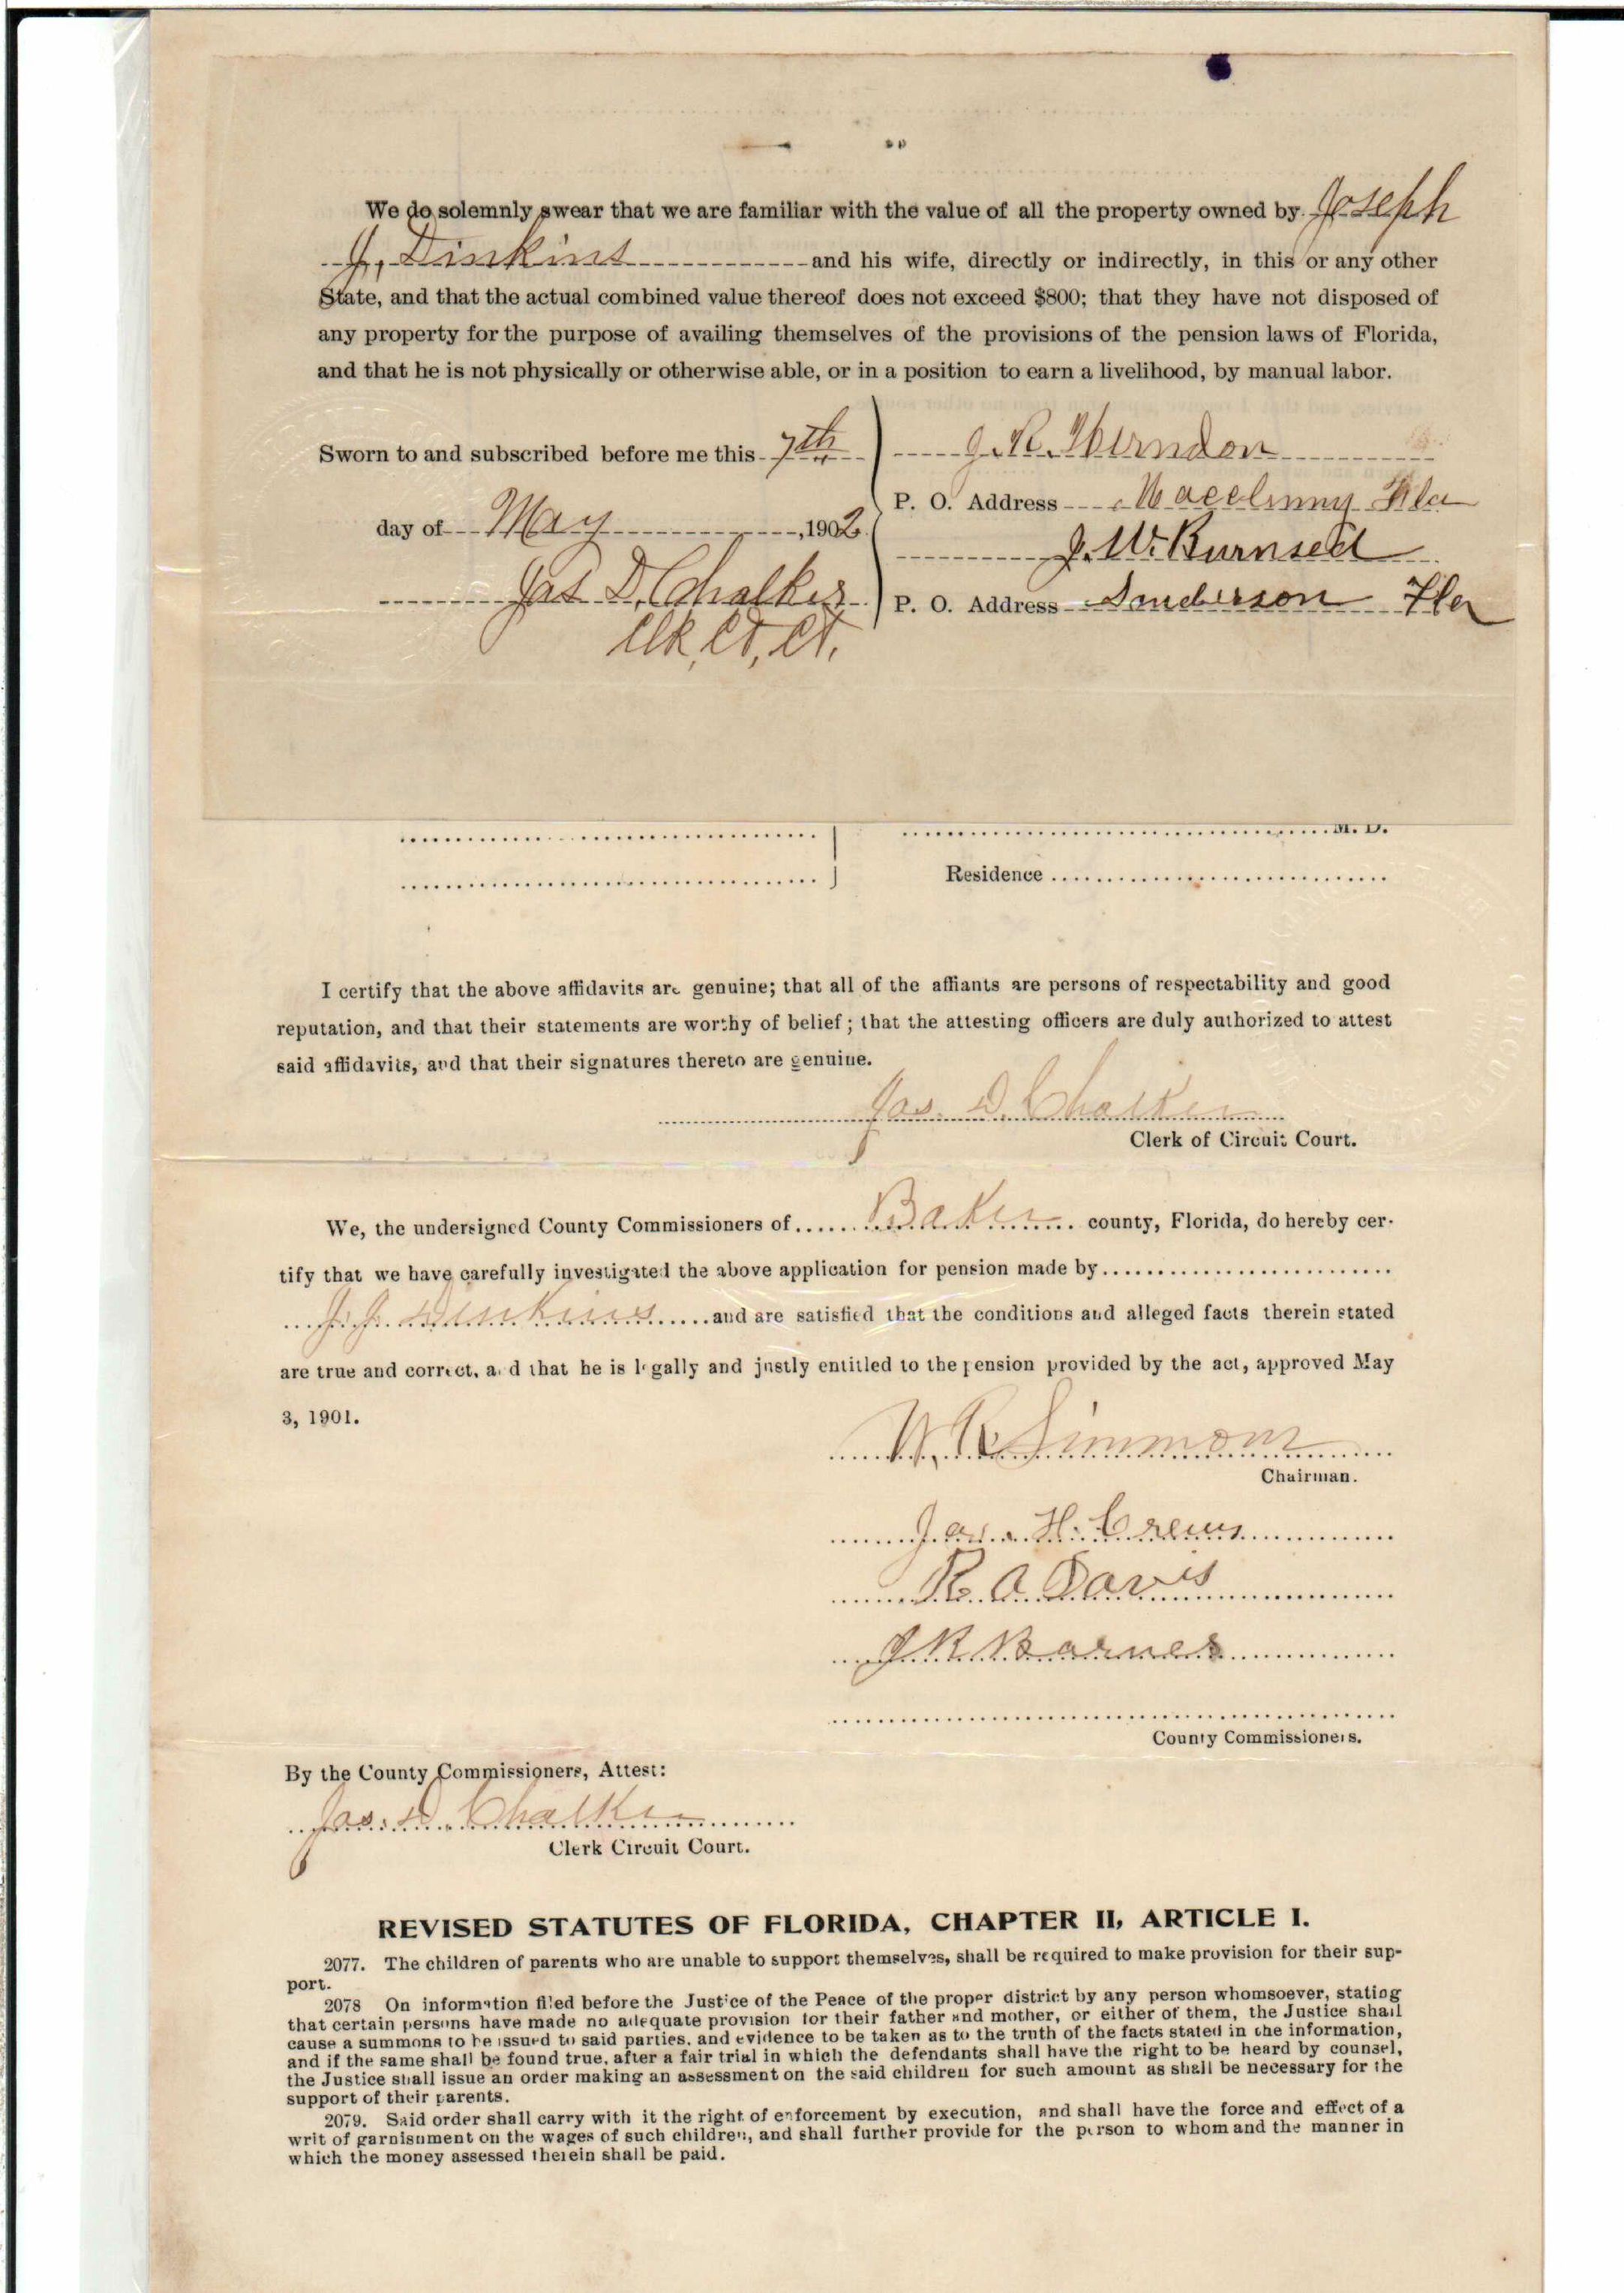 We do solemnly swear that we are familiar with the value of all the property owned by Joseph
J. Dinkins and his wife, directly or indirectly, in this or any other
State, and that the actual combined value thereof does not exceed $800; that they have not disposed of
any property for the purpose of availing themselves of the provisions of the pension laws of Florida,
and that he is not physically or otherwise able, or in a position to earn a livelihood, by manual labor.
Sworn to and subscribed before me this 7th
day of May, 1902
Jas D. Chalker
Clk, Ct, Ct.
J. R. Herndon
P. O. Address Macclenny Fla
J. W. Burnsed
P. O. Address Sanderson Fla
M. D.
Residence
I certify that the above affidavits are genuine; that all of the affiants are persons of respectability and good
reputation, and that their statements are worthy of belief; that the attesting officers are duly authorized to attest
said affidavits, and that their signatures thereto are genuine.
Jas. D. Chalker
Clerk of Circuit Court.
We, the undersigned County Commissioners of Baker county, Florida, do hereby cer-
tify that we have carefully investigated the above application for pension made by
J. J. Dinkins and are satisfied that the conditions and alleged facts therein stated
are true and correct, and that he is legally and justly entitled to the pension provided by the act, approved May
3, 1901.
W. R. Simmons
Chairman.
Jas. H. Crews
R. A. Davis
J R Barnes
County Commissioners.
By the County Commissioners, Attest:
Jas. D. Chalker
Clerk Circuit Court.
REVISED STATUTES OF FLORIDA, CHAPTER II, ARTICLE I.
2077. The children of parents who are unable to support themselves, shall be required to make provision for their sup-
port.
2078 On information filed before the Justice of the Peace of the proper district by any person whomsoever, stating
that certain persons have made no adequate provision for their father and mother, or either of them, the Justice shall
cause a summons to be issued to said parties, and evidence to be taken as to the truth of the facts stated in the information,
and if the same shall be found true, after a fair trial in which the defendants shall have the right to be heard by counsel,
the Justice shall issue an order making an assessment on the said children for such amount as shall be necessary for the
support of their parents.
2079. Said order shall carry with it the right of enforcement by execution, and shall have the force and effect of a
writ of garnishment on the wages of such children, and shall further provide for the person to whom and the manner in
which the money assessed therein shall be paid.